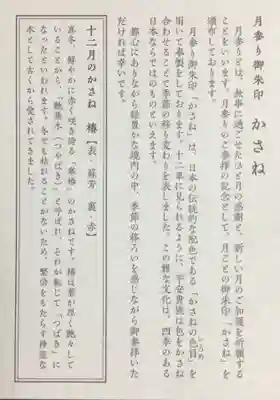 月参り御朱印 かさね
月参りとは、無事に過ごせたひと月の感謝と、新しい月のご加護を祈願する
ものです。月参りのご参拝の記念として、月ごとの御朱印「かさね」を
頒布しております。
月参り御朱印「かさね」は、日本の伝統的な配色である「かさねの色目」を
しきもく
用いて奉製をしております。十二単に見られるように、平安貴族は色をかさね
合わせることで季節の移り変わりを表しました。この雅な文化は、四季のある
日本ならではのものといえます。
都心にありながら緑豊かな境内の中、季節の移ろいを感じながら御参拝いた
だければ幸いです。
十二月のかさね 椿【表・蘇芳 裏・赤】
真冬、鮮やかに赤く咲き誇る「寒椿」のかさねです。椿は葉が厚く艶々して
いることから、「艶葉木（つやばき）」と呼ばれ、それが転じて「つばき」に
なったといわれます。冬でも枯れることがないため、繁栄をもたらす神聖な
木として古くから愛されてきました。